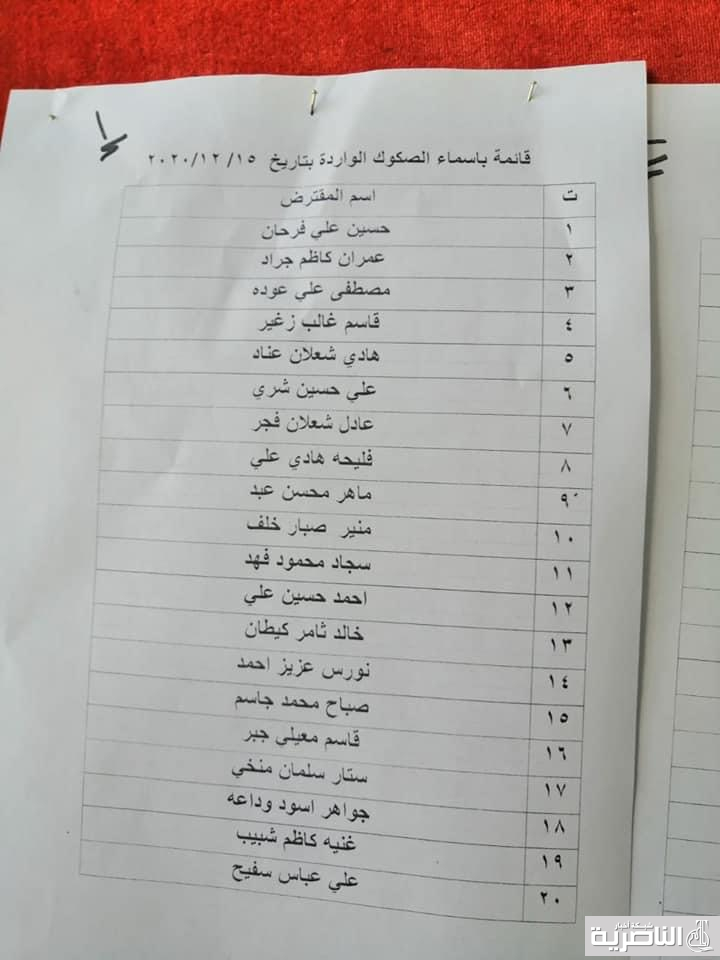 قائمة باسماء الصكوك الواردة بتاريخ ٢٠٢٠/١٢/١٥
ت اسم المقترض
١ حسين علي فرحان
٢ عمران كاظم جراد
٣ مصطفى علي عوده
٤ قاسم غالب زغير
٥ هادي شعلان عناد
٦ علي حسين شري
٧ عادل شعلان فجر
٨ فليحه هادي علي
٩ ماهر محسن عبد
١٠ منير صبار خلف
١١ سجاد محمود فهد
١٢ احمد حسين علي
١٣ خالد ثامر كيطان
١٤ نورس عزيز احمد
١٥ صباح محمد جاسم
١٦ قاسم معيلي جبر
١٧ ستار سلمان منخي
١٨ جواهر اسود وداعه
١٩ غنيه كاظم شبيب
٢٠ علي عباس سفيح
شبكة اخبار
الناصرية